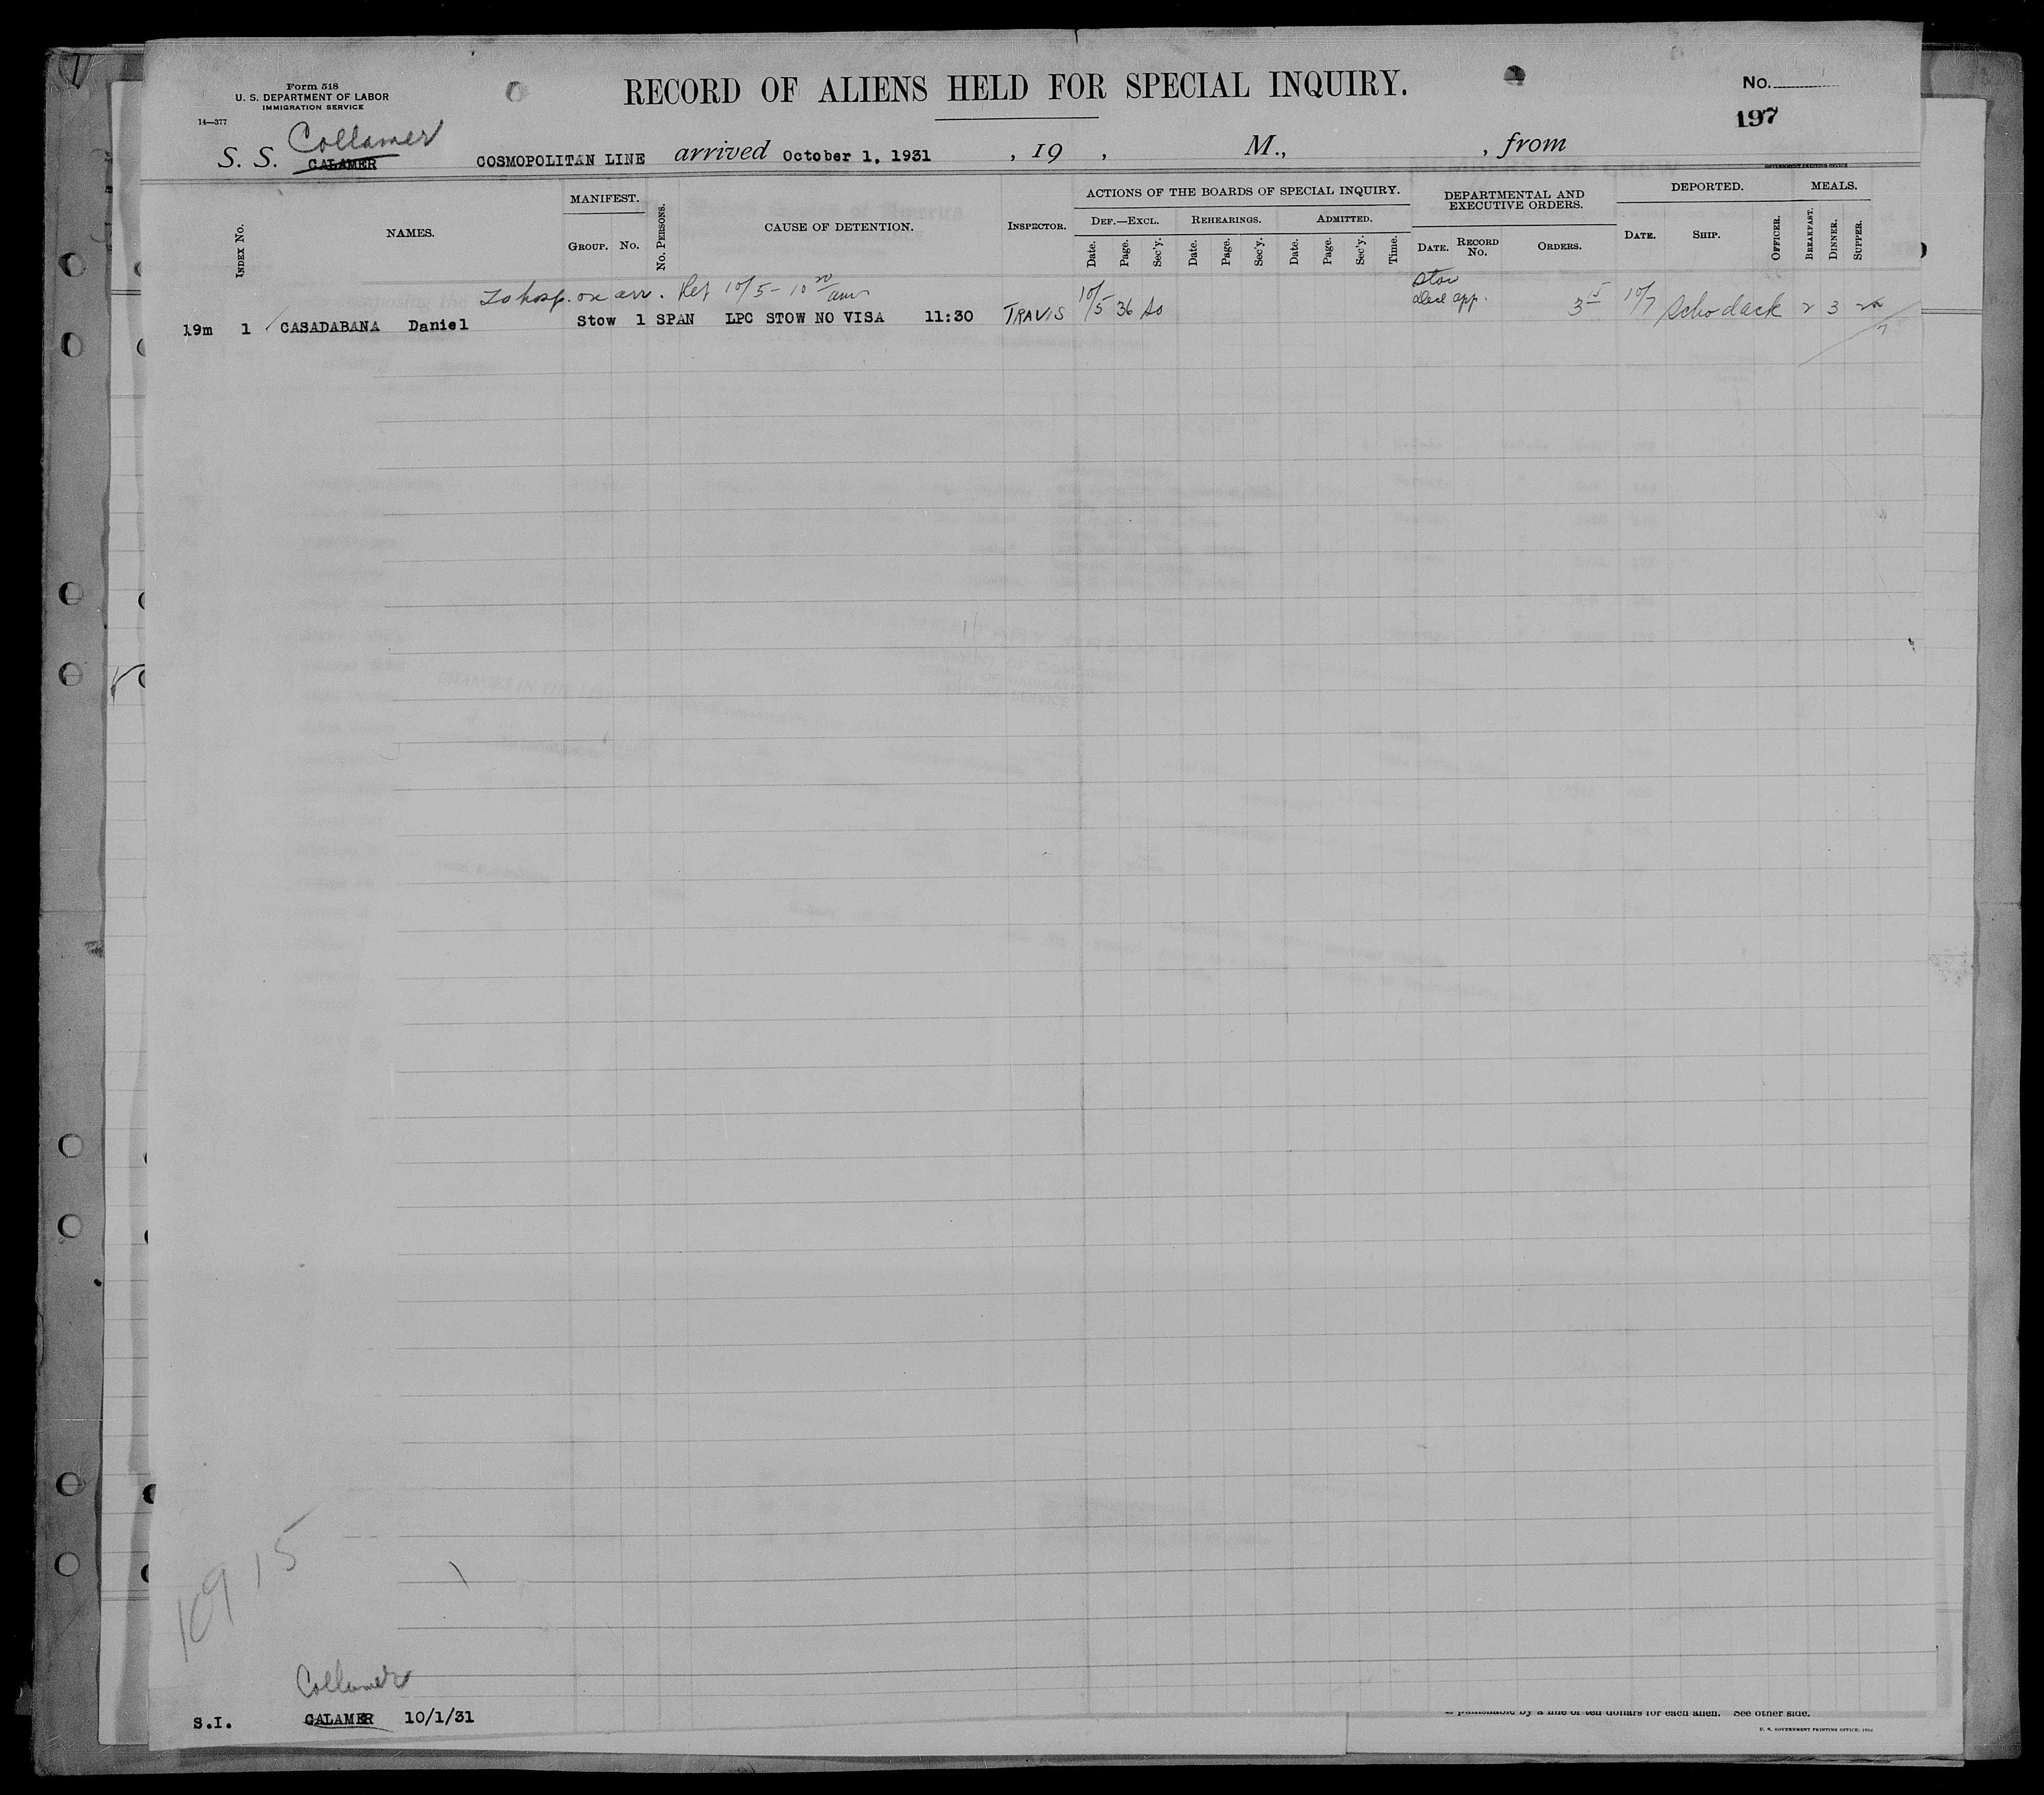 Form 518
U. S. DEPARTMENT OF LABOR
IMMIGRATION SERVICE
14—377
RECORD OF ALIENS HELD FOR SPECIAL INQUIRY.
No.
197
Collamer
S. S. CALAMER COSMOPOLITAN LINE arrived October 1, 1931 , 19 , M., , from
GOVERNMENT PRINTING OFFICE
INDEX NO. NAMES. MANIFEST. GROUP. NO. NO. PERSONS. CAUSE OF DETENTION. INSPECTOR. ACTIONS OF THE BOARDS OF SPECIAL INQUIRY. DEF.—EXCL. Date. Page. Sec'y. REHEARINGS. Date. Page. Sec'y. ADMITTED. Date. Page. Sec'y. Time. DEPARTMENTAL AND EXECUTIVE ORDERS. DATE. RECORD NO. ORDERS. DEPORTED. DATE. SHIP. OFFICER. MEALS. BREAKFAST. DINNER. SUPPER.
To hosp. on arr. Ret 10/5 - 10 am
19m 1 CASADABANA Daniel Stow 1 SPAN LPC STOW NO VISA 11:30 TRAVIS 10/5 36 So Stow Decl app. 10/7 Schodack 2 3
1915
Collamer
S.I. CALAMER 10/1/31
is punishable by a fine of ten dollars for each alien. See other side.
U. S. GOVERNMENT PRINTING OFFICE: